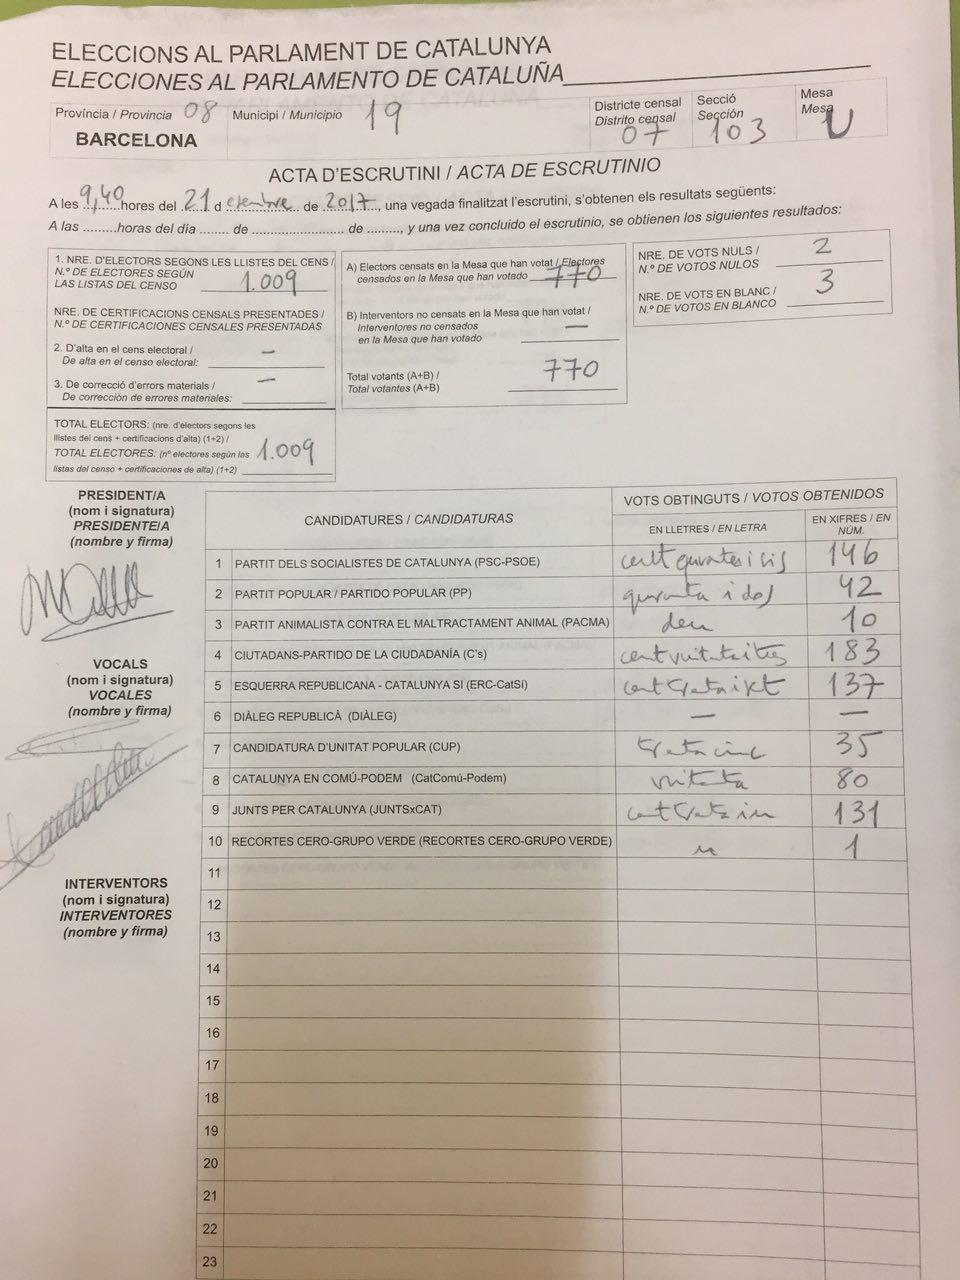 ELECCIONS AL PARLAMENT DE CATALUNYA
ELECCIONES AL PARLAMENTO DE CATALUÑA
Província / Provincia 08
BARCELONA
Municipi / Municipio 19
Districte censal
Distrito censal
07
Secció
Sección
103
Mesa
Mesa
U
ACTA D'ESCRUTINI / ACTA DE ESCRUTINIO
A les 9,40 hores del 21 d desembre de 2017, una vegada finalitzat l'escrutini, s'obtenen els resultats següents:
A las .........horas del día ........ de ......................... de ........., y una vez concluido el escrutinio, se obtienen los siguientes resultados:
1. NRE. D'ELECTORS SEGONS LES LLISTES DEL CENS /
N.º DE ELECTORES SEGÚN
LAS LISTAS DEL CENSO 1.009
NRE. DE CERTIFICACIONS CENSALS PRESENTADES /
N.º DE CERTIFICACIONES CENSALES PRESENTADAS
2. D'alta en el cens electoral /
De alta en el censo electoral: —
3. De correcció d'errors materials /
De corrección de errores materiales: —
TOTAL ELECTORS: (nre. d'electors segons les
llistes del cens + certificacions d'alta) (1+2) /
TOTAL ELECTORES: (nº electores según las
listas del censo + certificaciones de alta) (1+2) 1.009
A) Electors censats en la Mesa que han votat / Electores
censados en la Mesa que han votado 770
B) Interventors no censats en la Mesa que han votat /
Interventores no censados
en la Mesa que han votado —
Total votants (A+B) /
Total votantes (A+B) 770
NRE. DE VOTS NULS /
N.º DE VOTOS NULOS 2
NRE. DE VOTS EN BLANC /
N.º DE VOTOS EN BLANCO 3
PRESIDENT/A
(nom i signatura)
PRESIDENTE/A
(nombre y firma)
VOCALS
(nom i signatura)
VOCALES
(nombre y firma)
INTERVENTORS
(nom i signatura)
INTERVENTORES
(nombre y firma)
CANDIDATURES / CANDIDATURAS
VOTS OBTINGUTS / VOTOS OBTENIDOS
EN LLETRES / EN LETRA
EN XIFRES / EN
NÚM.
1 PARTIT DELS SOCIALISTES DE CATALUNYA (PSC-PSOE) 146
2 PARTIT POPULAR / PARTIDO POPULAR (PP) quaranta i dos 42
3 PARTIT ANIMALISTA CONTRA EL MALTRACTAMENT ANIMAL (PACMA) deu 10
4 CIUTADANS-PARTIDO DE LA CIUDADANÍA (C's) 183
5 ESQUERRA REPUBLICANA - CATALUNYA SÍ (ERC-CatSí) 137
6 DIÀLEG REPUBLICÀ (DIÀLEG) — —
7 CANDIDATURA D'UNITAT POPULAR (CUP) 35
8 CATALUNYA EN COMÚ-PODEM (CatComú-Podem) 80
9 JUNTS PER CATALUNYA (JUNTSxCAT) 131
10 RECORTES CERO-GRUPO VERDE (RECORTES CERO-GRUPO VERDE) 1
11
12
13
14
15
16
17
18
19
20
21
22
23